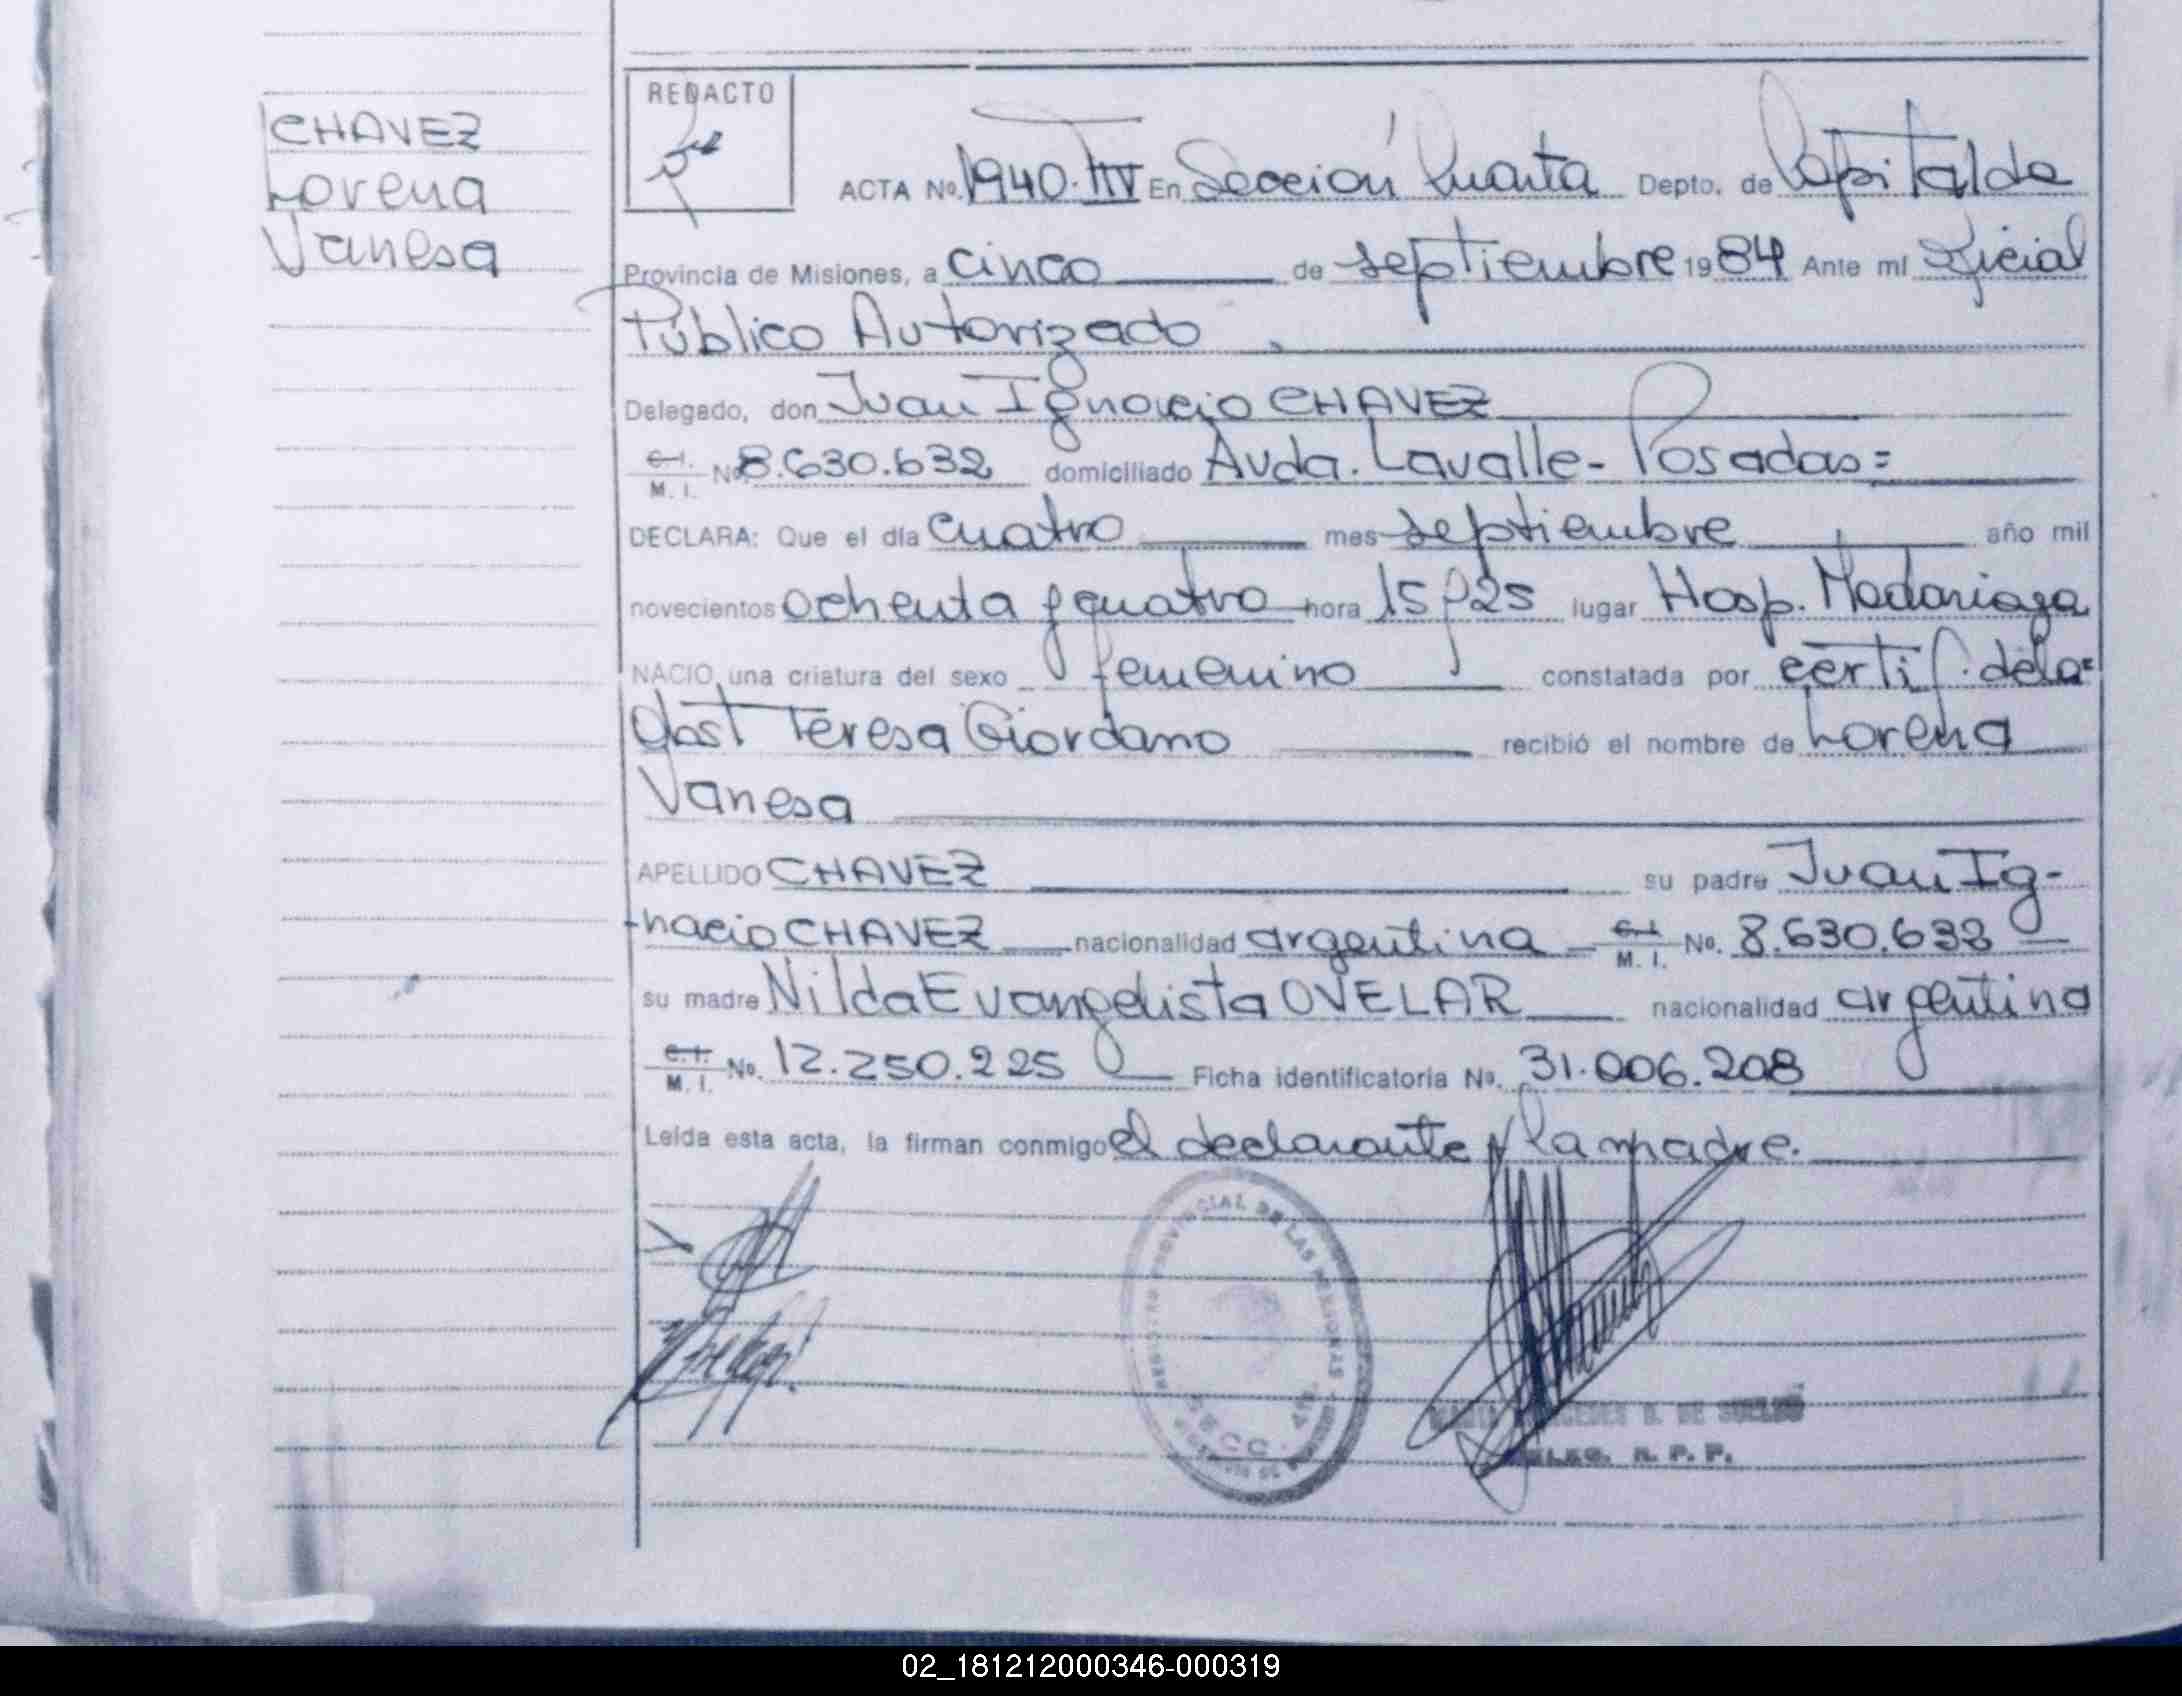 CHAVEZ
Lorena
Vanesa
REDACTO
ACTA No. 1940. En Sección Cuarta Depto. de Capital de
Provincia de Misiones, a cinco de septiembre 1984 Ante mí Oficial
Público Autorizado
Delegado, don Juan Ignacio CHAVEZ
C. I. M. I. No. 8.630.632 domiciliado Avda. Lavalle - Posadas =
DECLARA: Que el día cuatro mes septiembre año mil
novecientos ochenta y cuatro hora 15 y 25 lugar Hosp. Madariaga
NACIO una criatura del sexo femenino constatada por certif. de la =
Obst Teresa Giordano recibió el nombre de Lorena
Vanesa
APELLIDO CHAVEZ su padre Juan Ig-
-nacio CHAVEZ nacionalidad argentina C. I. M. I. No. 8.630.632
su madre Nilda Evangelista OVELAR nacionalidad argentina
C. I. M. I. No. 12.250.225 Ficha identificatoria No. 31.006.208
Leída esta acta, la firman conmigo el declarante y la madre.
PROVINCIAL DE LAS PERSONAS
SECC. 4ta.
MERCEDES B. DE
R. P. P.
02_181212000346-000319